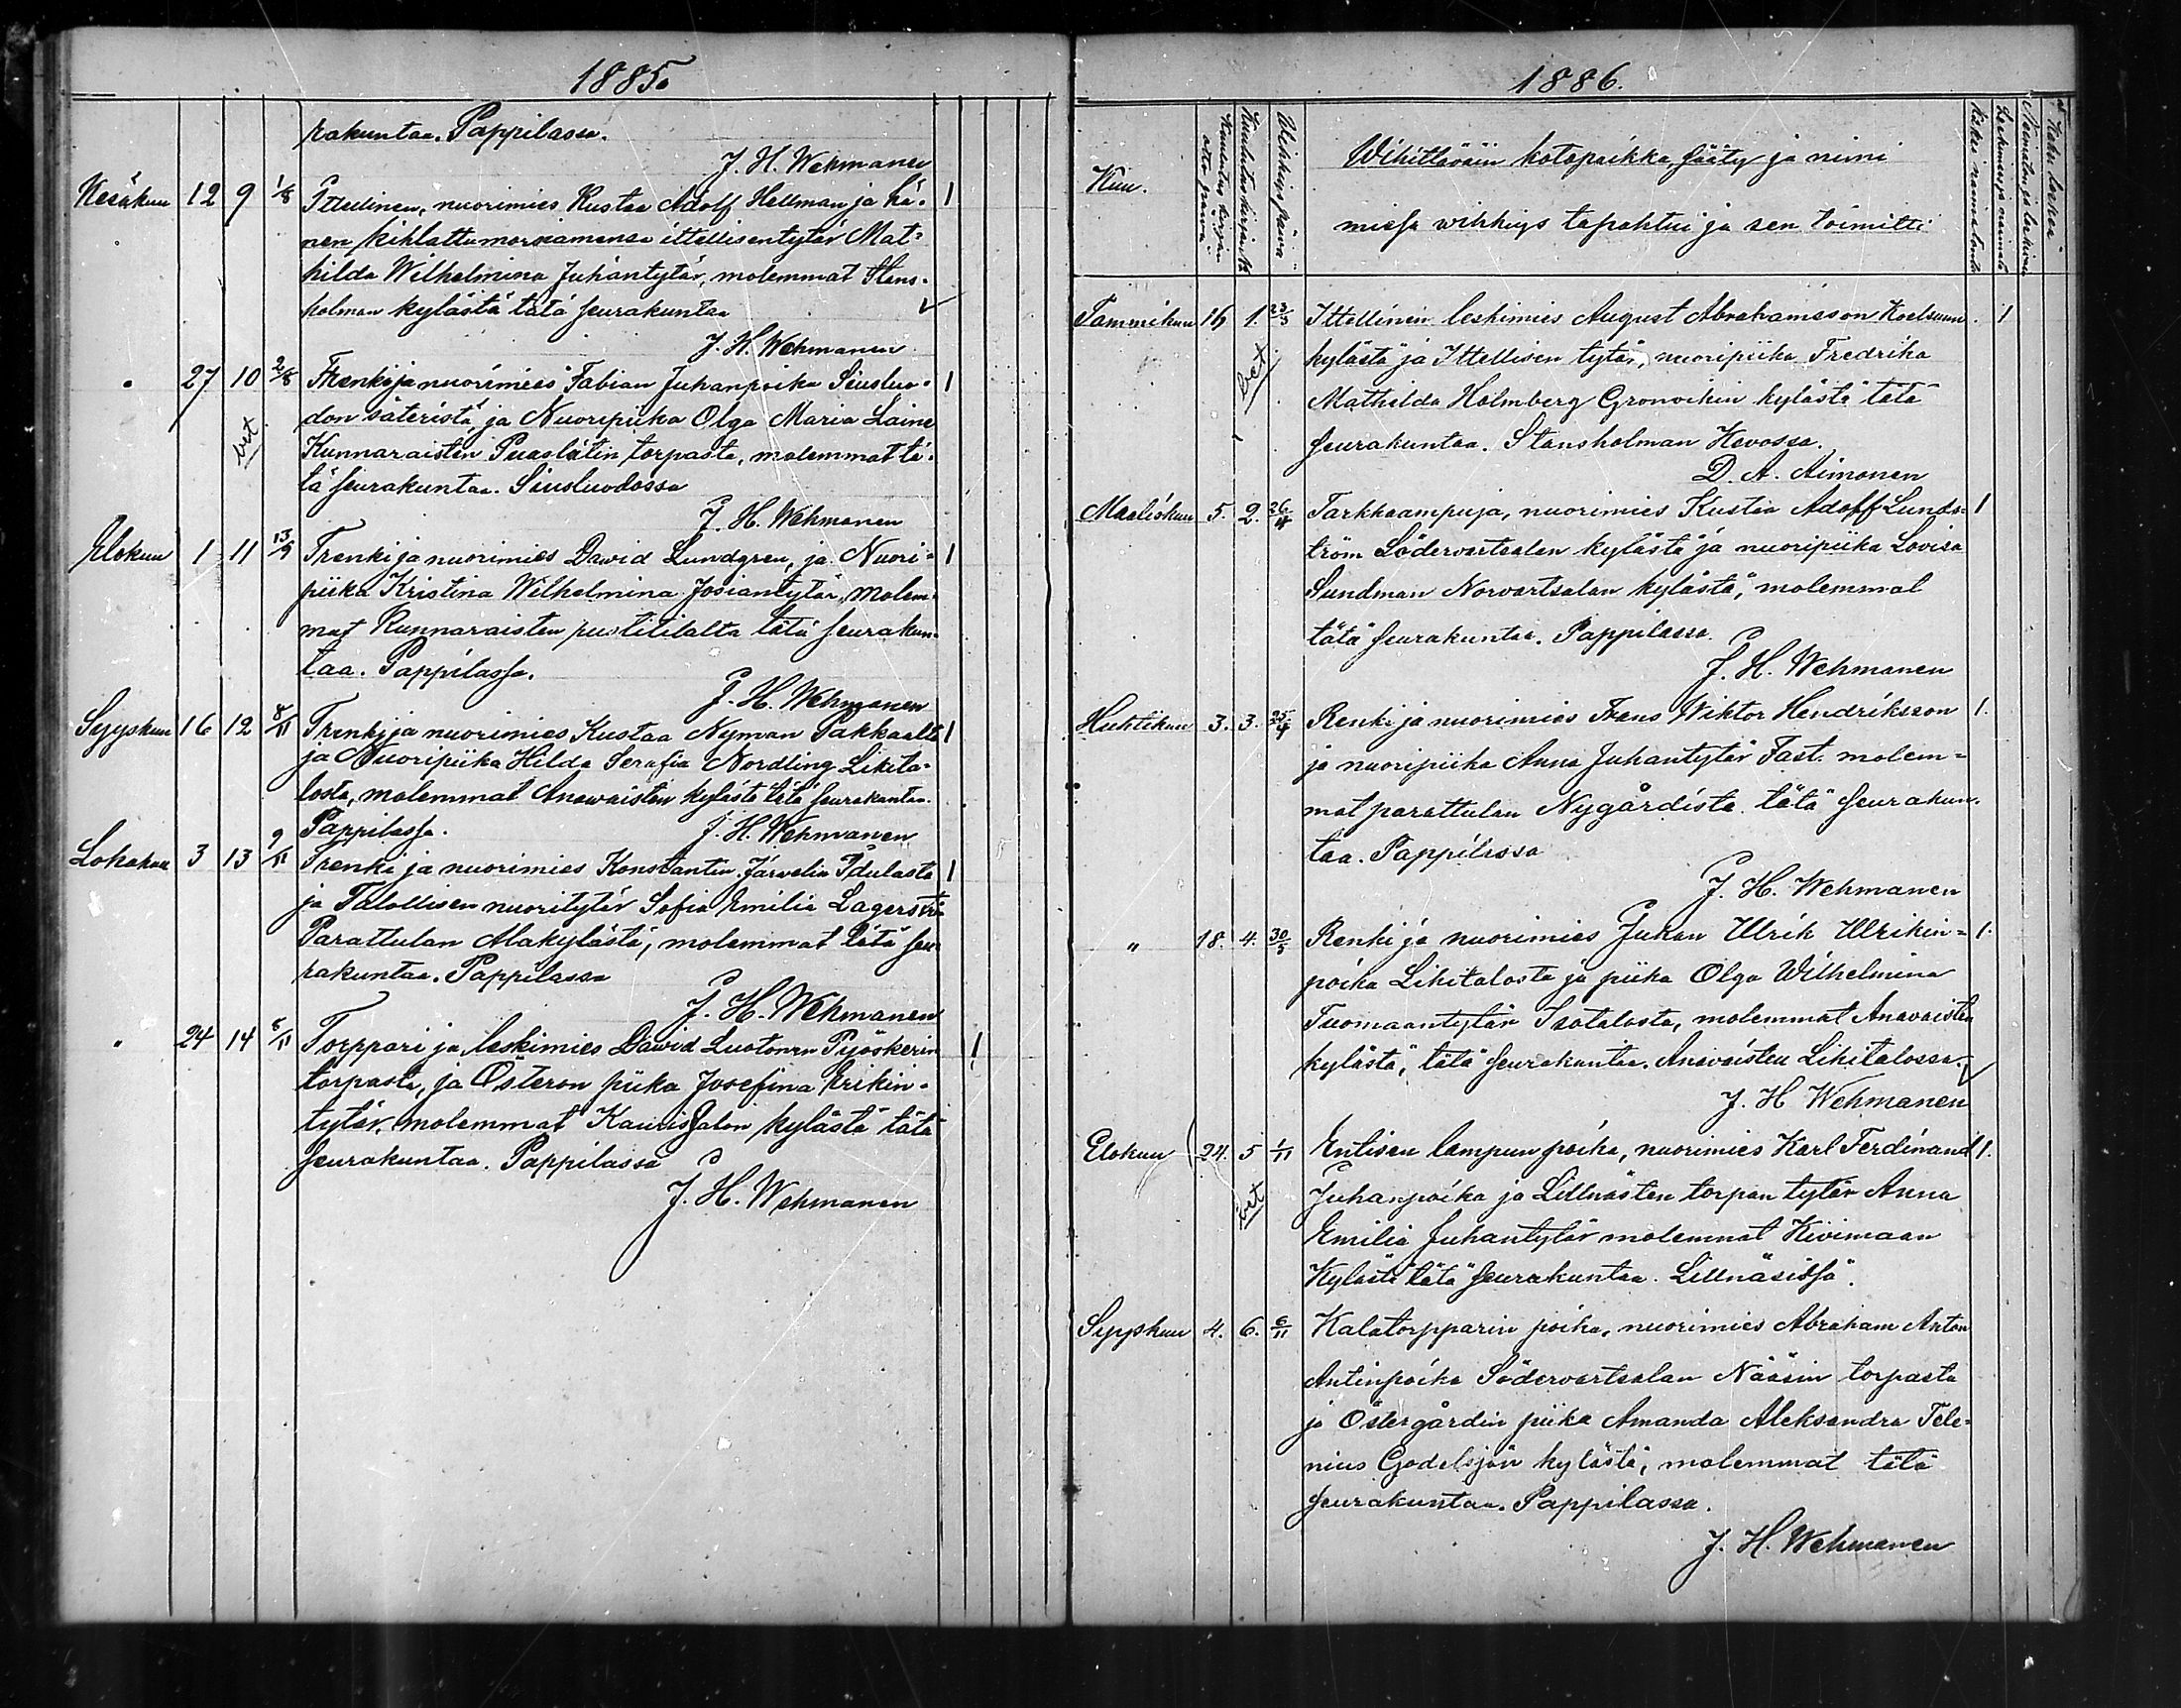 1885.
rakuntaa. Pappilassa.
J. H. Wehmanen
Kesäkuu 12 9 1/8 Ittellinen, nuorimies Kustaa Adolf Hellman ja hä-
nen kihlattu morsiamensa ittellisentytär Mat-
hilda Wilhelmina Juhantytär, molemmat Stens-
holman kylästä tätä seurakuntaa
J. H. Wehmanen
" 27 10 2/8 Trenki ja nuorimies Fabian Juhanpoika Siusluo-
don säteristä, ja Nuoripiika Olga Maria Laine
bet
Kunnaraisten torpasta, molemmat tä-
tä seurakuntaa. Siusluodossa
J. H. Wehmanen
Elokuu 1 11 13/9 Trenki ja nuorimies Dawid Lundgren, ja Nuori- 1
piika Kristina Wilhelmina Josiantytär, molem-
mat Kunnaraisten pustitilalta tätä seurakun-
taa. Pappilassa.
J. H. Wehmanen
Syyskuu 16 12 8/11 Trenki ja nuorimies Kustaa Nyman Pakkaalta 1
ja Nuoripiika Hilda Serafia Nordling Likita-
losta, molemmat Anawaisten kylästä tätä seurakuntaa.
Pappilassa. J. H. Wehmanen
Lokakuu 3 13 9/11 Trenki ja nuorimies Konstantin Järvelin 1
ja Talollisen nuoritytär Sofia Emilia
Parattulan Alakylästä, molemmat tätä seu-
rakuntaa. Pappilassa
J. H. Wehmanen
" 24 14 8/11 Torppari ja leskimies Dawid Luotonen Pyöskerin 1
torpasta, ja Österon piika Josefina Erikin-
tytär, molemmat Kaurissalon kylästä tätä
seurakuntaa. Pappilassa
J. H. Wehmanen
1886.
Kuu.
Kuulutus kirjan otto päiwä
Kuulutuskirja №
Wihkiys päiwä
Wihittäwäin kotopaikka, sääty ja nimi
missä wihkiys tapahtui ja sen toimitti
Tammikuu 16 1. 23/3 Ittellinen leskimies August Abrahamsson Koelsuun 1
kylästä ja Ittellisen tytär, nuoripiika Fredrika
bet
Mathilda Holmberg Gronvikin kylästä tätä
seurakuntaa. Stansholman Hevossa.
D. A. Aimonen
Maaliskuu 5. 2. 26/4 Tarkkaampuja, nuorimies Kustaa Adolf Lunds- 1
tröm Södervartsalan kylästä ja nuoripiika Lovisa
Sundman Norvartsalan kylästä, molemmat
tätä seurakuntaa. Pappilassa.
J. H. Wehmanen
Huhtikuu 3. 3. 25/4 Renki ja nuorimies Frans Wiktor Hendriksson 1.
ja nuoripiika Anna Juhantytär Fast. molem-
mat parattulan Nygårdista tätä seurakun-
taa. Pappilassa
J. H. Wehmanen
" 18. 4. 30/5 Renki ja nuorimies Juhan Ulrik Ulrikin- 1.
poika Likitalosta ja piika Olga Wilhelmina
Tuomaantytär Isotalosta, molemmat Anavaisten
kylästä, tätä seurakuntaa. Anavaisten Likitalossa.
J. H Wehmanen
Elokuu 24. 5 1/11 Entisen lampun poika, nuorimies Karl Ferdinand 1.
bet
Juhanpoika ja Lillnästen torpan tytär Anna
Emilia Juhantytär molemmat Kivimaan
Kylästä tätä seurakuntaa. Lillnäsissä.
Syyskuu 4. 6. 6/11 Kalatorpparin poika, nuorimies Abraham Anton
Antinpoika Södervartsalan Nääsin torpasta
ja Östergårdin piika Amanda Aleksandra Tele-
nius Godelsjön kylästä, molemmat tätä
seurakuntaa. Pappilassa.
J. H. Wehmanen